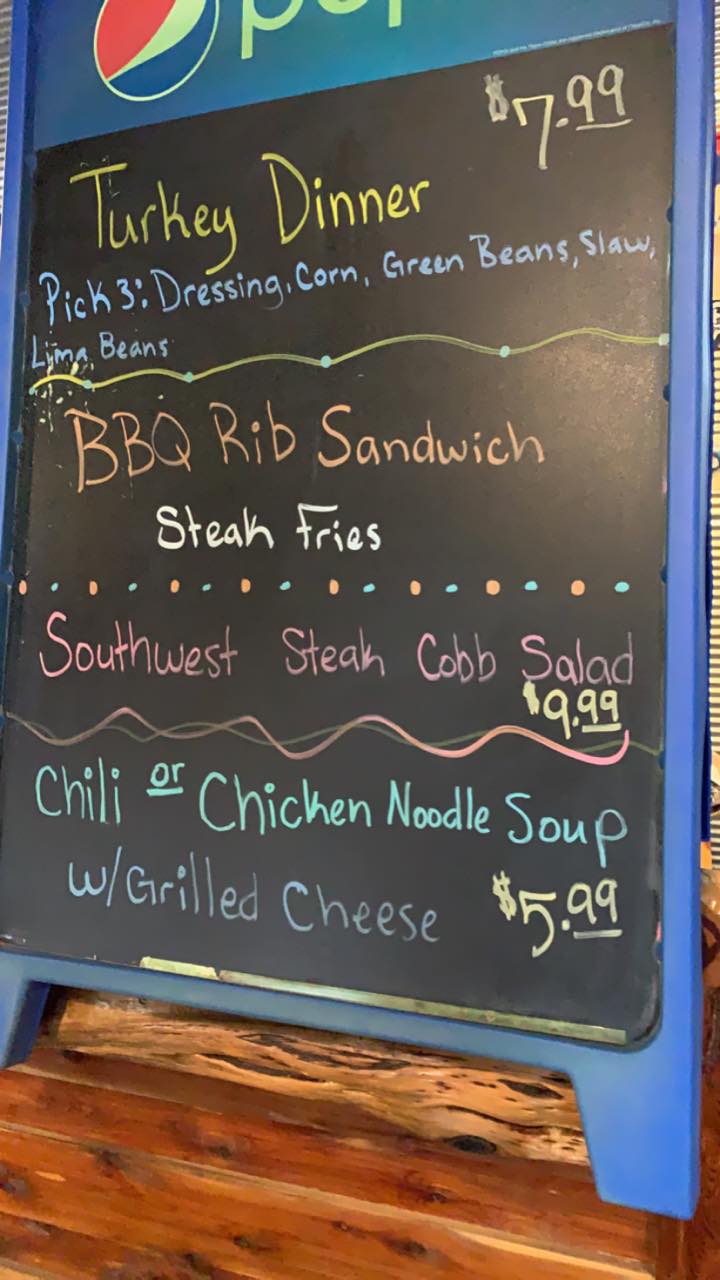 $7.99
Turkey Dinner
Pick 3: Dressing, Corn, Green Beans, Slaw,
Lima Beans
BBQ Rib Sandwich
Steak Fries
Southwest Steak Cobb Salad
$9.99
Chili or Chicken Noodle Soup
w/Grilled Cheese $5.99